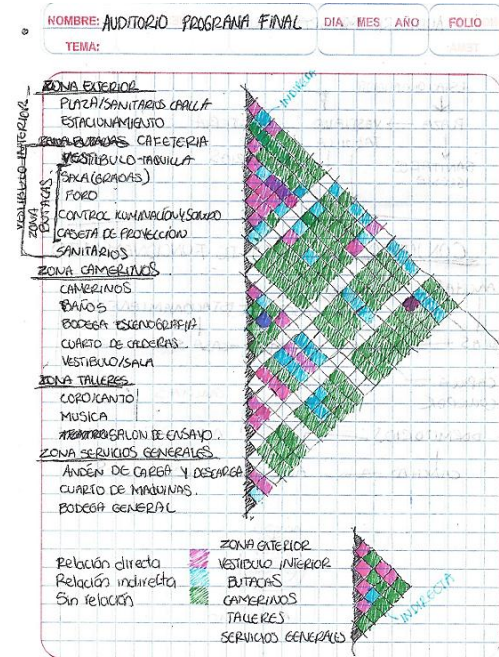 NOMBRE: AUDITORIO PROGRAMA FINAL DIA MES AÑO FOLIO
TEMA:
ZONA EXTERIOR
PLAZA/SANITARIOS CAPILLA
ESTACIONAMIENTO
CAFETERIA
VESTIBULO-TAQUILLA
SALA(GRADAS)
FORO
CONTROL ILUMINACIÓN Y SONIDO
CASETA DE PROYECCIÓN
SANITARIOS
VESTIBULO INTERIOR
ZONA BUTACAS
ZONA CAMERINOS
CAMERINOS
BAÑOS
BODEGA ESCENOGRAFIA
CUARTO DE CALDERAS
VESTIBULO/SALA
ZONA TALLERES
CORO/CANTO
MUSICA
SALON DE ENSAYO.
ZONA SERVICIOS GENERALES
ANDÉN DE CARGA Y DESCARGA
CUARTO DE MAQUINAS.
BODEGA GENERAL
INDIRECTA
Relación directa
Relación indirecta
Sin relación
ZONA EXTERIOR
VESTIBULO INTERIOR
BUTACAS
CAMERINOS
TALLERES
SERVICIOS GENERALES
INDIRECTA